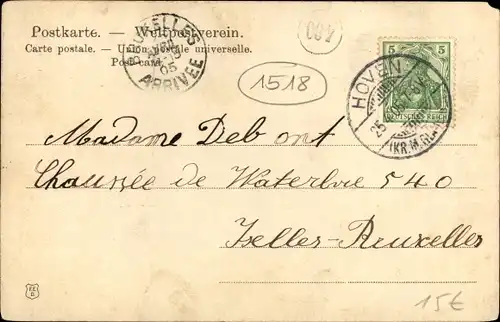 Postkarte. — Weltpostverein.
Carte postale. — Union postale universelle.
Post card.
BRUXELLES
05
ARRIVÉE
1518
5 5
DEUTSCHES REICH
HOVEN
25
(KR. M. GL.
Madame Debont
Chaussée de Waterloo 540
Ixelles-Bruxelles
15€